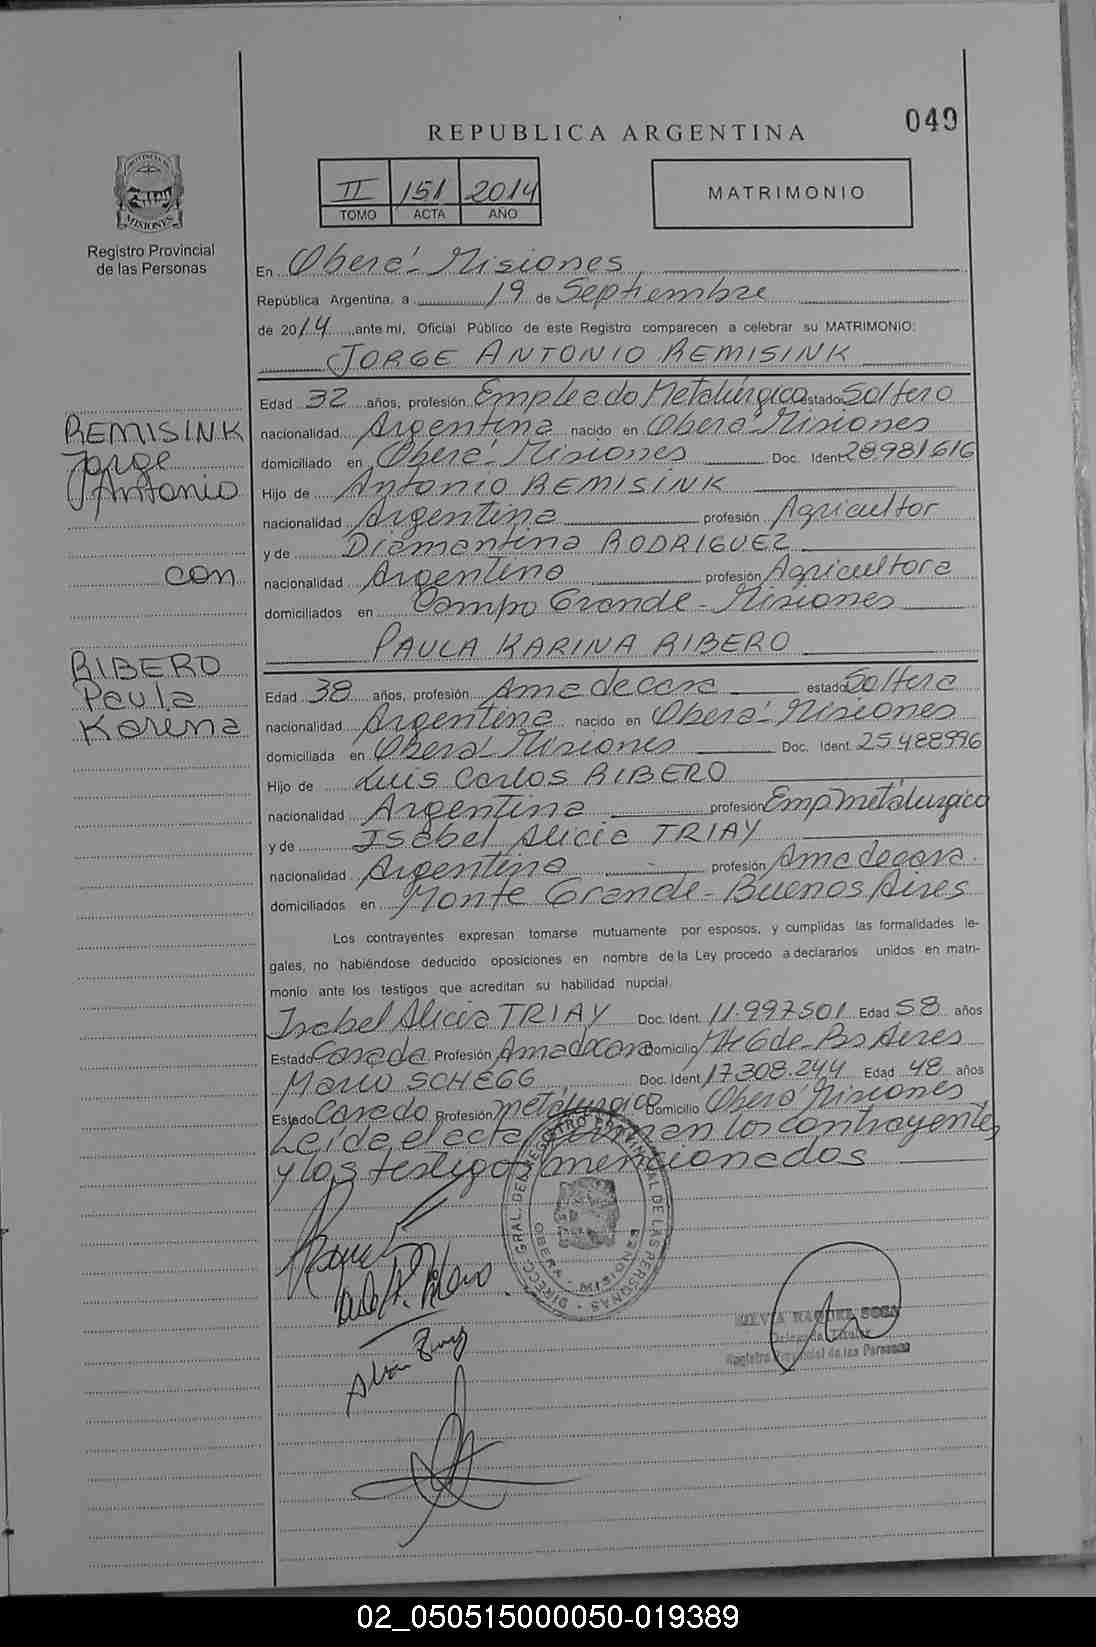 049
REPUBLICA ARGENTINA
II 151 2014
TOMO ACTA AÑO
MATRIMONIO
PROVINCIA DE
MISIONES
Registro Provincial
de las Personas
En Oberá - Misiones
República Argentina, a 19 de Septiembre
de 2014 ante mí, Oficial Público de este Registro comparecen a celebrar su MATRIMONIO:
JORGE ANTONIO REMISINK
Edad 32 años, profesión Empleado Metalúrgico estado Soltero
nacionalidad Argentina nacido en Oberá - Misiones
domiciliado en Oberá - Misiones Doc. Ident 28981616
Hijo de Antonio REMISINK
nacionalidad Argentina profesión Agricultor
y de Diamantina RODRIGUEZ
nacionalidad Argentina profesión Agricultora
domiciliados en Campo Grande - Misiones
PAULA KARINA RIBERO
Edad 38 años, profesión Ama de casa estado Soltera
nacionalidad Argentina nacido en Oberá - Misiones
domiciliada en Oberá - Misiones Doc. Ident. 25488996
Hijo de Luis Carlos RIBERO
nacionalidad Argentina profesión Emp metalurgico
y de Isabel Alicia TRIAY
nacionalidad Argentina profesión Ama de casa.
domiciliados en Monte Grande - Buenos Aires
Los contrayentes expresan tomarse mutuamente por esposos, y cumplidas las formalidades le-
gales, no habiéndose deducido oposiciones en nombre de la Ley procedo a declararlos unidos en matri-
monio ante los testigos que acreditan su habilidad nupcial.
Isabel Alicia TRIAY Doc. Ident. 11.997.501 Edad 58 años
Estado Casada Profesión Ama de casa Domicilio Mte Gde - Bs Aires
Mario SCHEGG Doc. Ident 17.308.244 Edad 48 años
Estado Casado Profesión metalurgico Domicilio Oberá Misiones
Leída el acta firman los contrayentes
y los testigos mencionados
DIRECC. GRAL. DEL REGISTRO PROVINCIAL DE LAS PERSONAS
OBERA - MISIONES
RAQUEL SOSA
Delegada Titular
Registro Provincial de las Personas
REMISINK
Jorge
Antonio
con
RIBERO
Paula
Karina
02_050515000050-019389